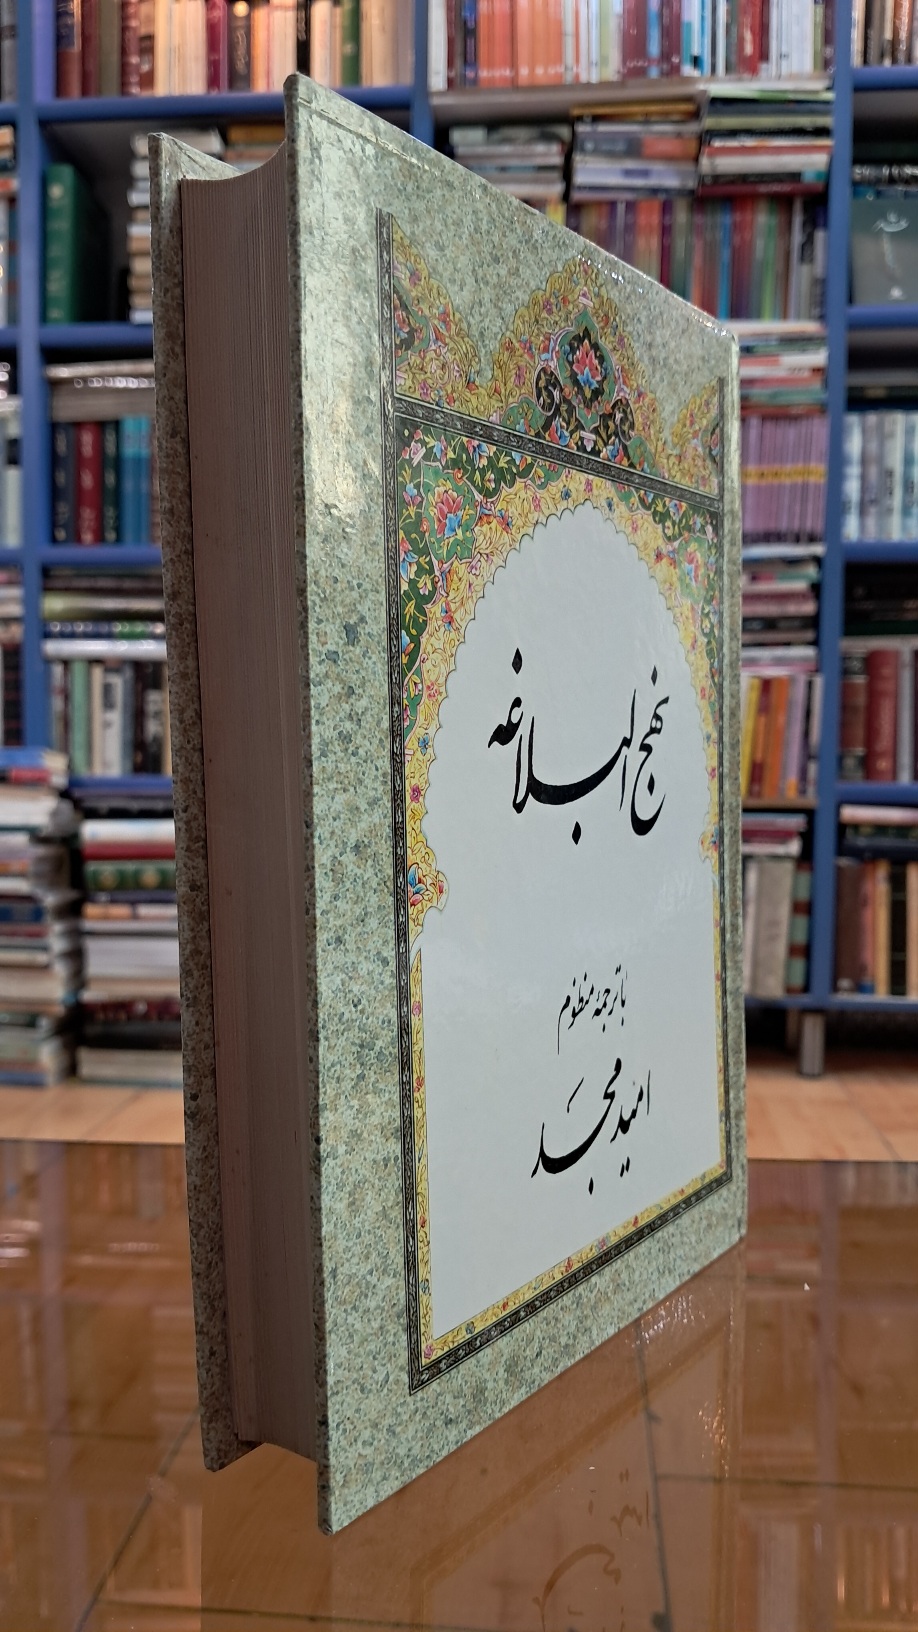 نهج البلاغه
با ترجمۀ منظوم
امید مجد